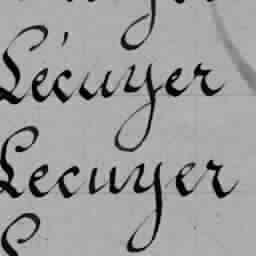 Lécuyer
Lecuyer